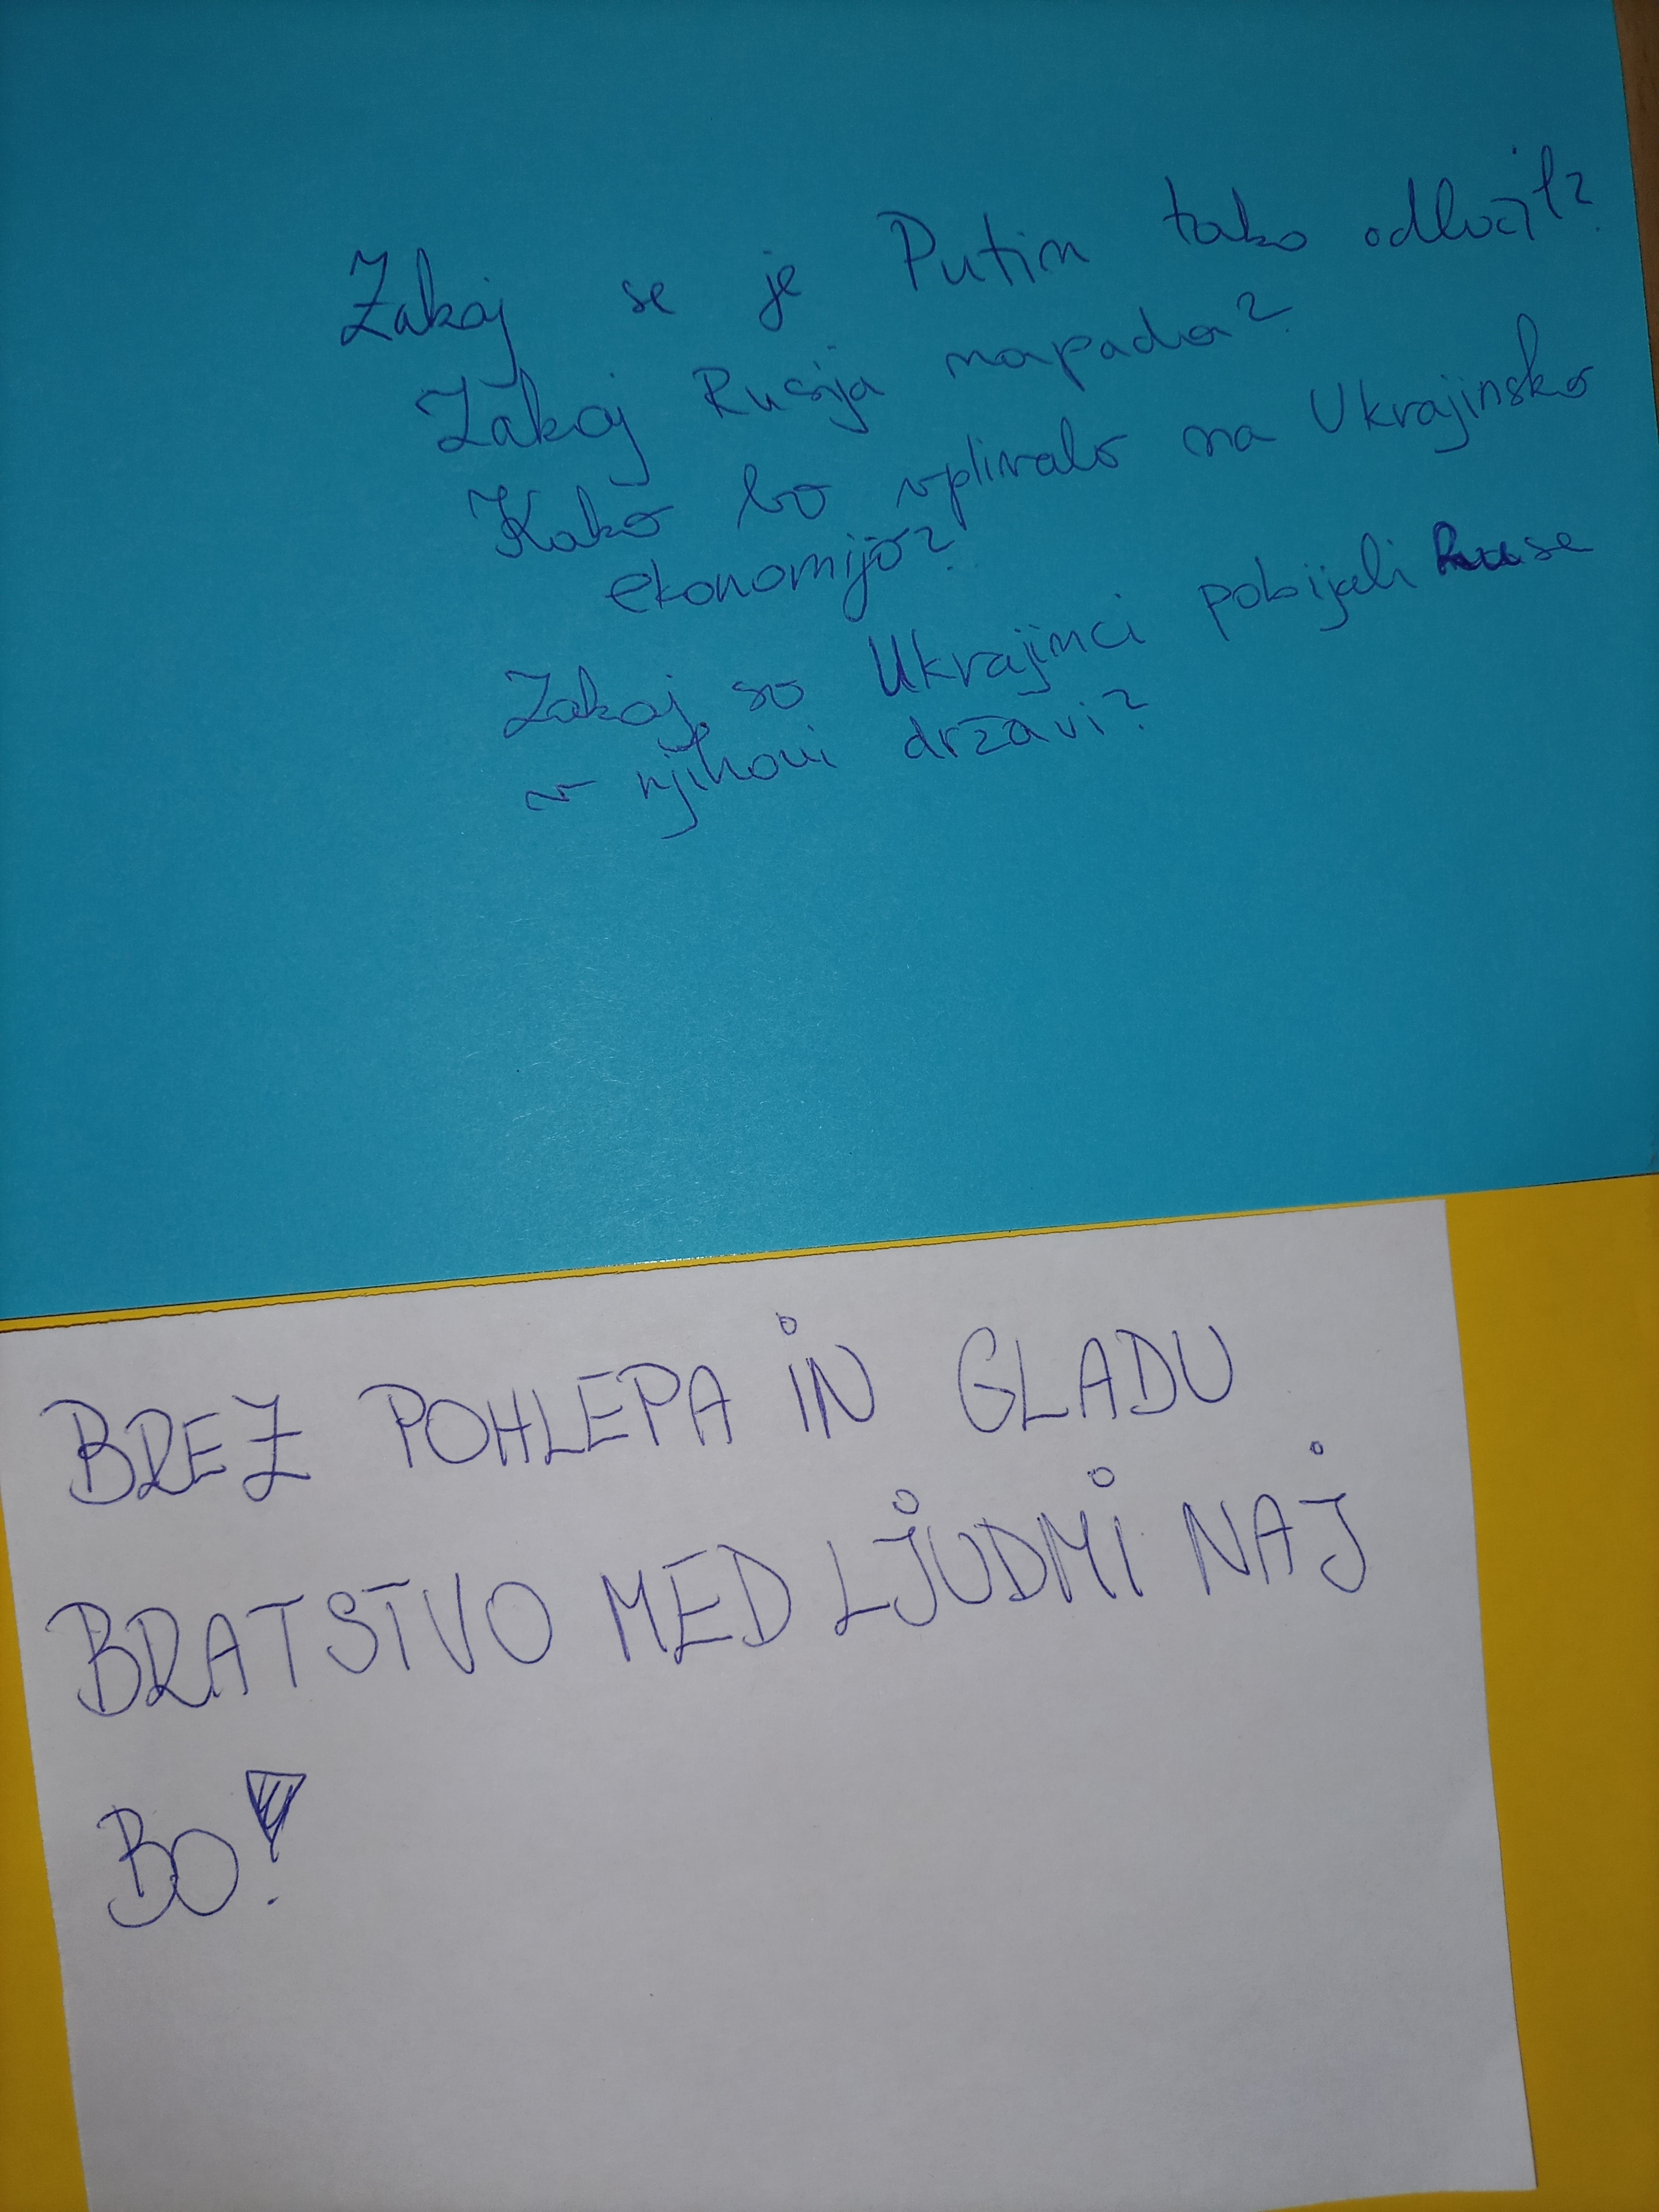 Zakaj se je Putin tako odločil?
Zakaj Rusija napada?
Kako bo vplivalo na Ukrajinsko
ekonomijo?
Zakaj so Ukrajinci pobijali Ruse
v njihovi državi?
BREZ POHLEPA IN GLADU
BRATSTVO MED LJUDMI NAJ
BO!